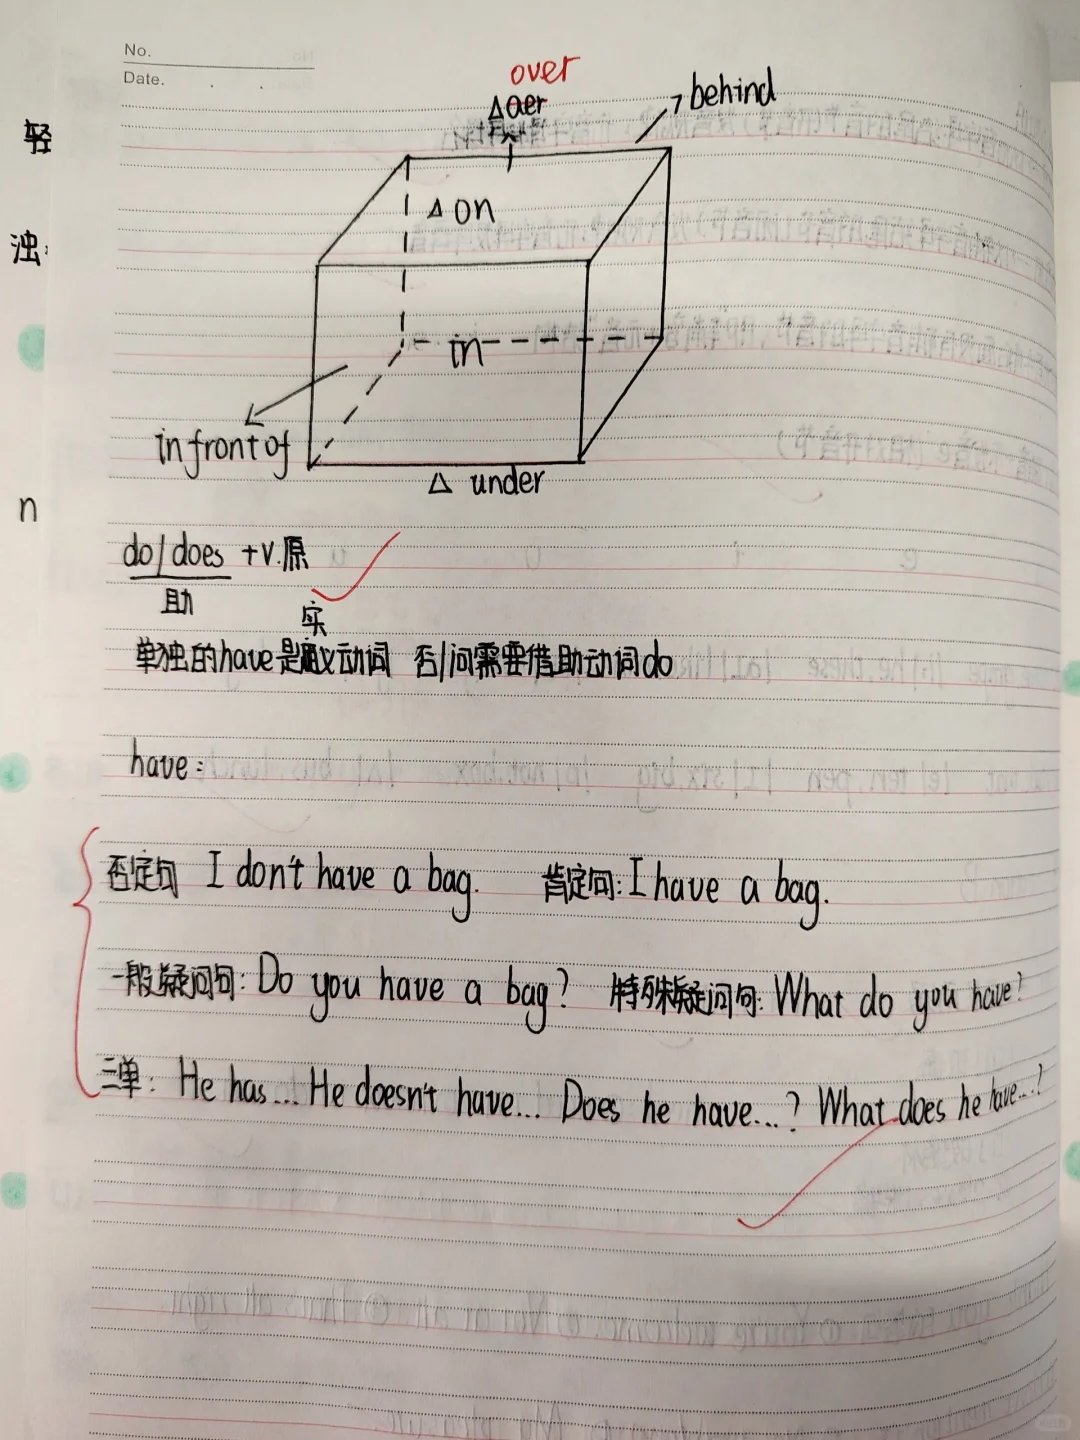 No.
Date.
over
轻
Δaer
behind
浊:
Δ on
in
in front of
Δ under
n
do/does +v.原
助
实
单独的have是义动词 否/问需要借助动词do
have:
否定句 I don't have a bag. 肯定句: I have a bag.
一般疑问句: Do you have a bag? 特殊疑问句: What do you have?
三单: He has... He doesn't have... Does he have...? What does he have...?